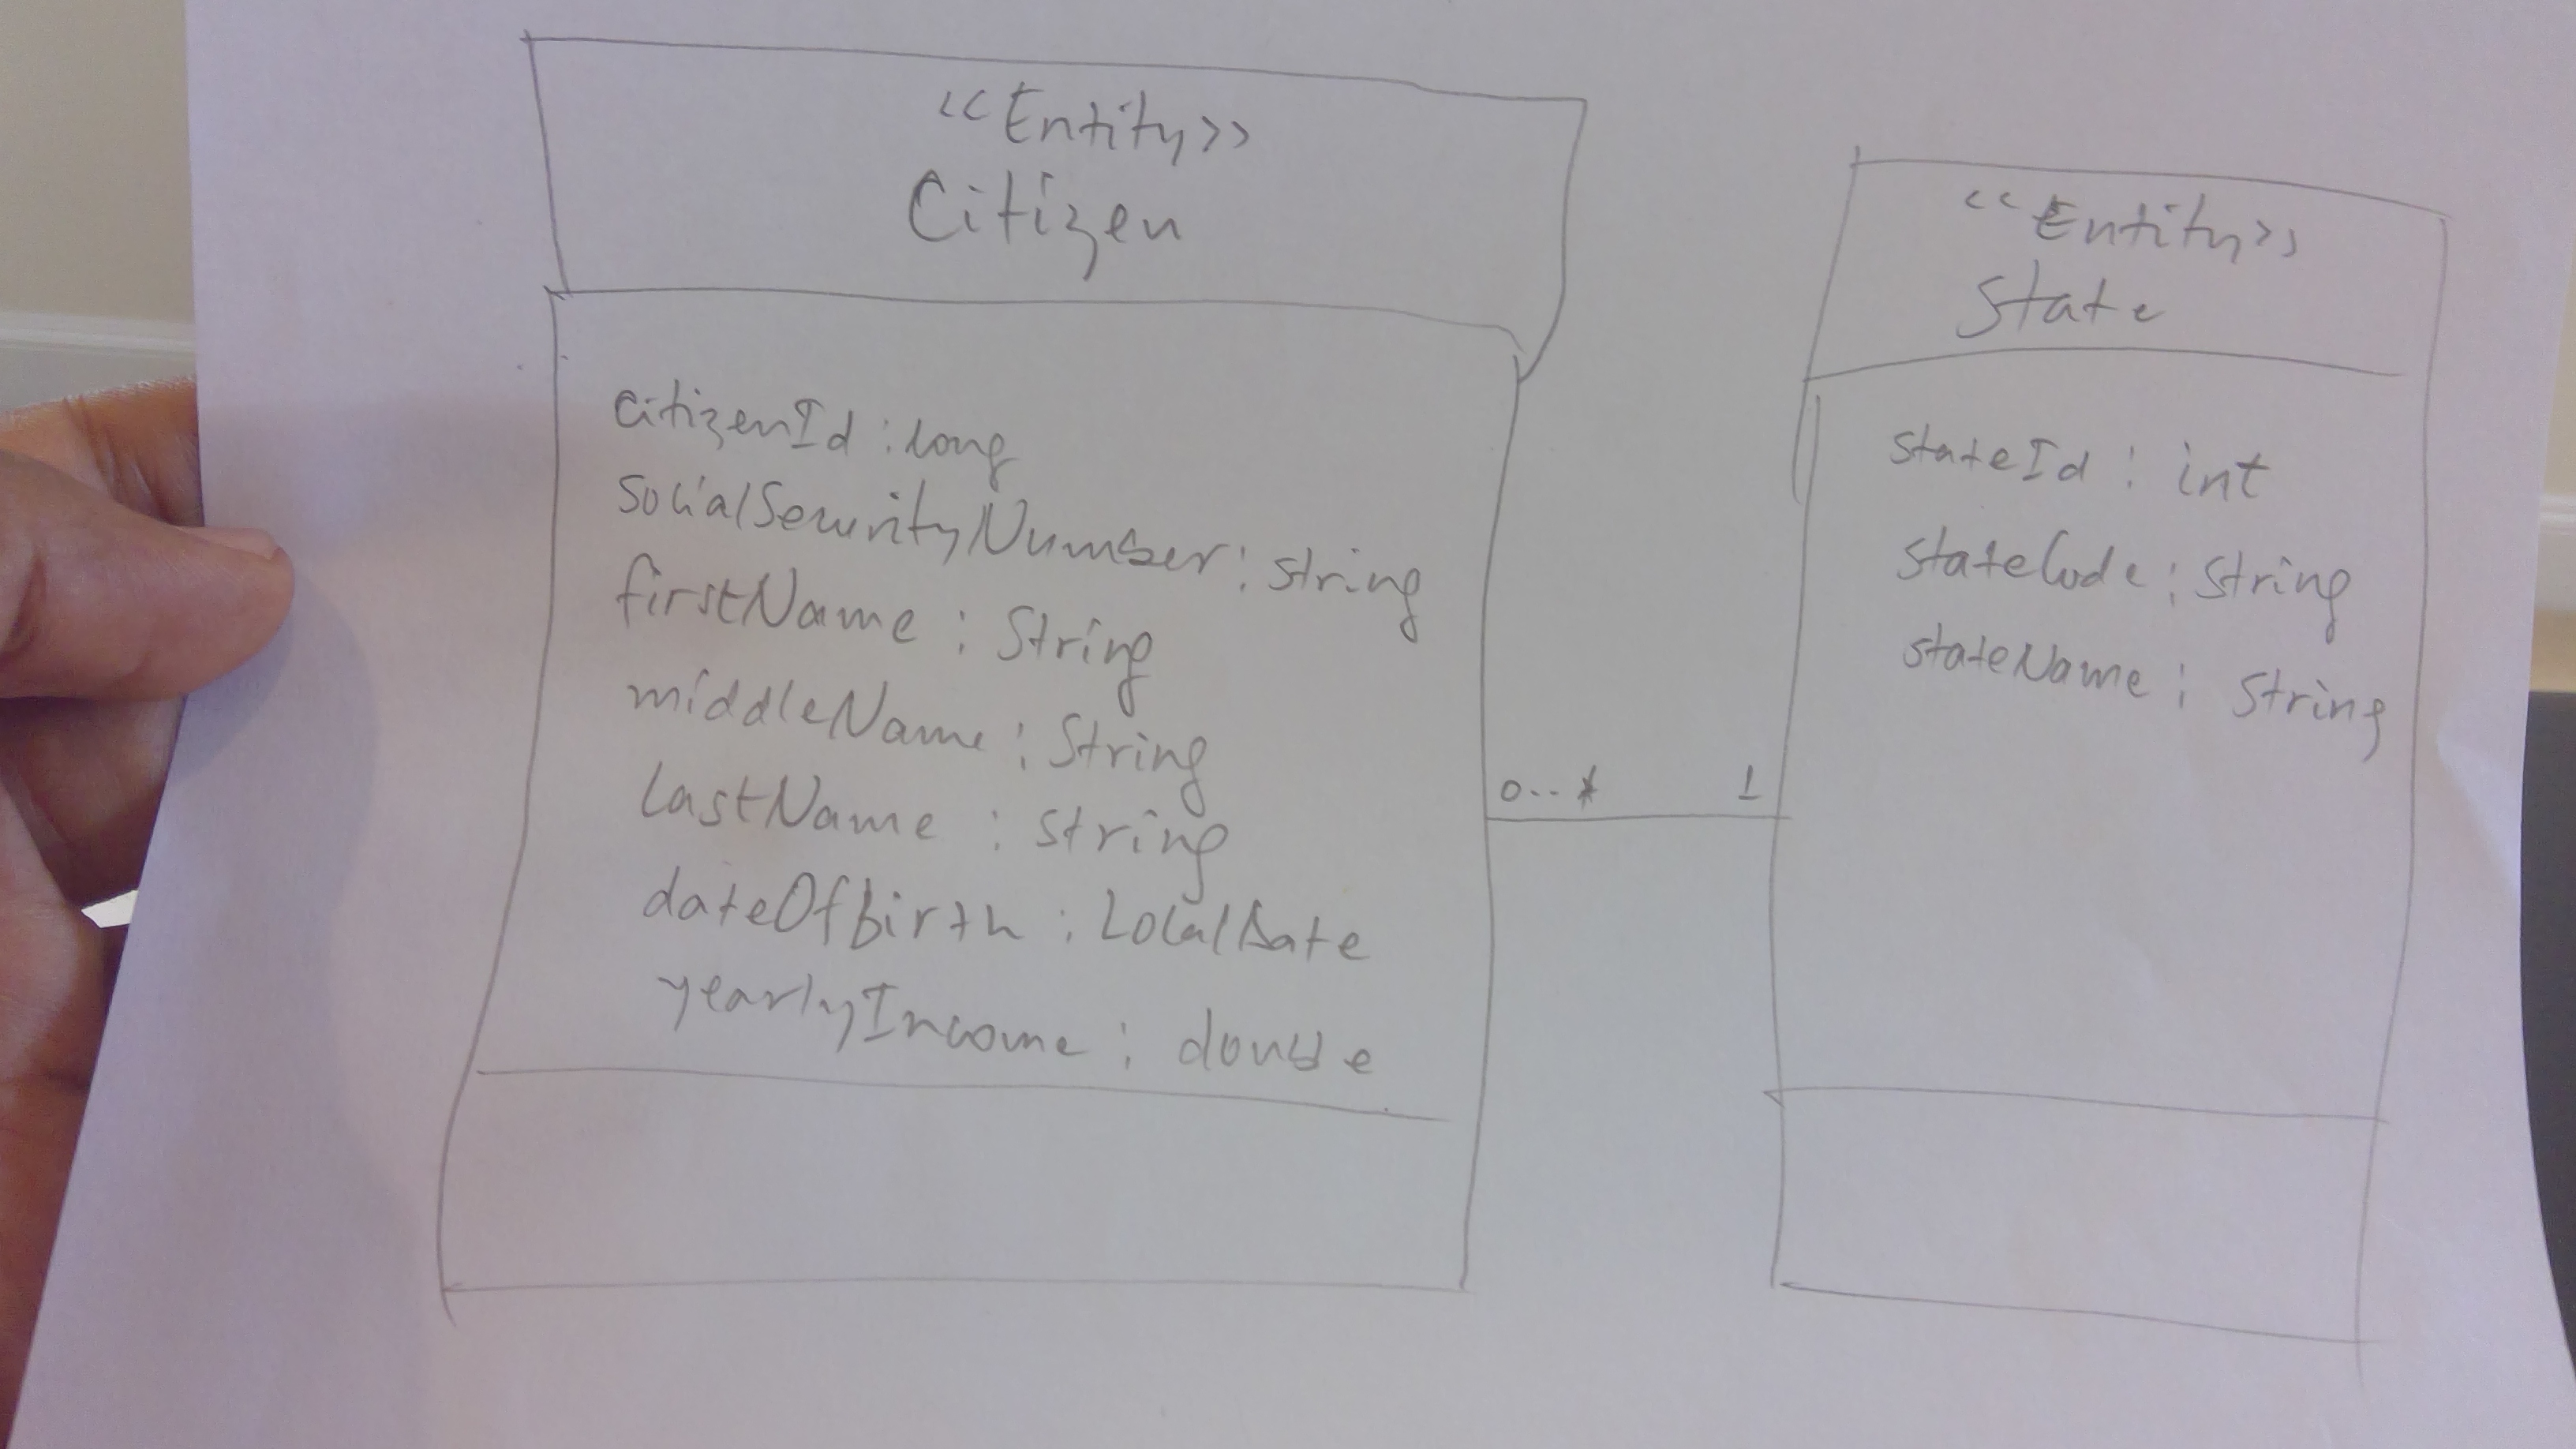 <<Entity>>
Citizen
citizenId : long
socialSecurityNumber : string
firstName : String
middleName : String
lastName : string
dateOfBirth : LocalDate
yearlyIncome : double
0..* 1
<<Entity>>
State
stateId : int
stateCode : String
stateName : String